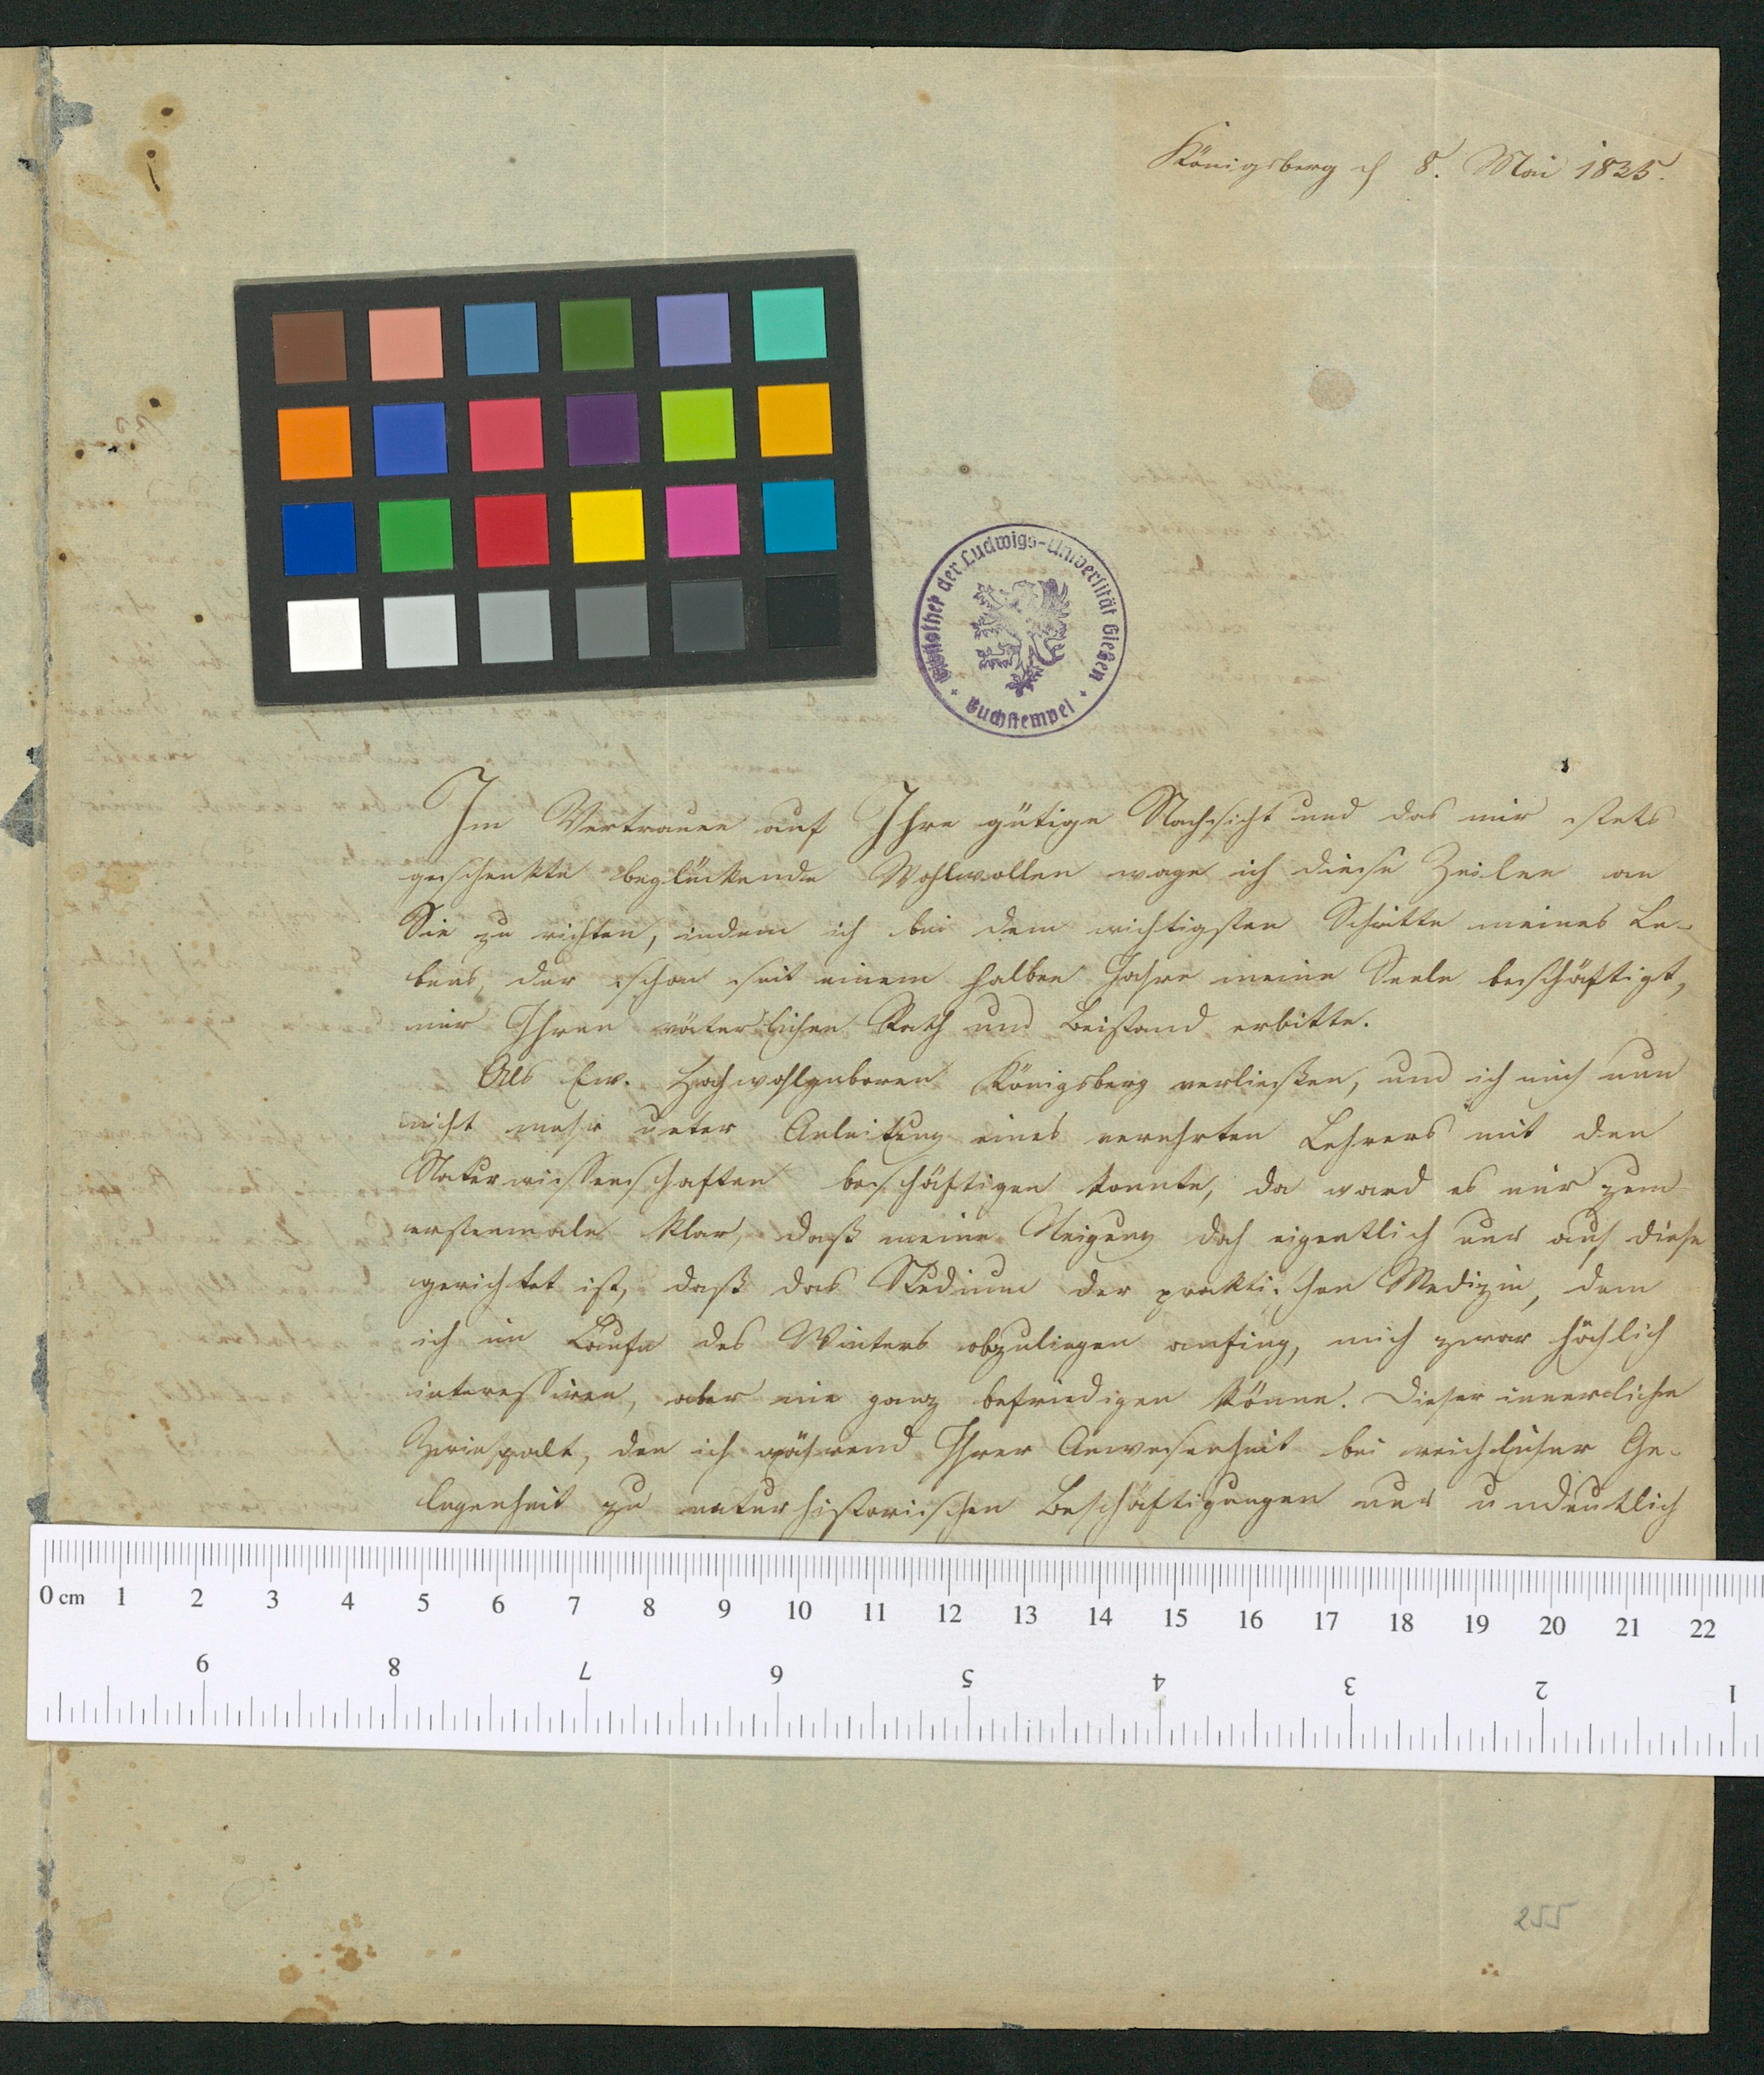 Königsberg d 8. Mai 1835.
Bibliothek der Ludwigs-Universität Gießen
Buchstempel
Im Vertrauen auf Ihre gütige Nachsicht und das mir stets
geschenkte beglückende Wohlwollen wage ich diese Zeilen an
Sie zu richten, indem ich bei dem wichtigsten Schritte meines Le-
bens, der schon seit einem halben Jahre meine Seele beschäftigt,
mir Ihren väterlichen Rath und Beistand erbitte.
Als Ew. Hochwohlgeboren Königsberg verließen, und ich mich nun
nicht mehr unter Anleitung eines verehrten Lehrers mit den
Naturwissenschaften beschäftigen konnte, da ward es mir zum
erstenmale klar, daß meine Neigung doch eigentlich nur auf diese
gerichtet ist, daß das Studium der praktischen Medizin, dem
ich im Laufe des Winters obzuliegen anfing, mich zwar höchlich
interessiren, aber nie ganz befriedigen könne. Dieser innerliche
Zwiespalt, den ich während Ihrer Anwesenheit bei reichlicher Ge-
legenheit zu naturhistorischen Beschäftigungen nur undeutlich
0 cm 1 2 3 4 5 6 7 8 9 10 11 12 13 14 15 16 17 18 19 20 21 22
9 8 7 6 5 4 3 2 1
255